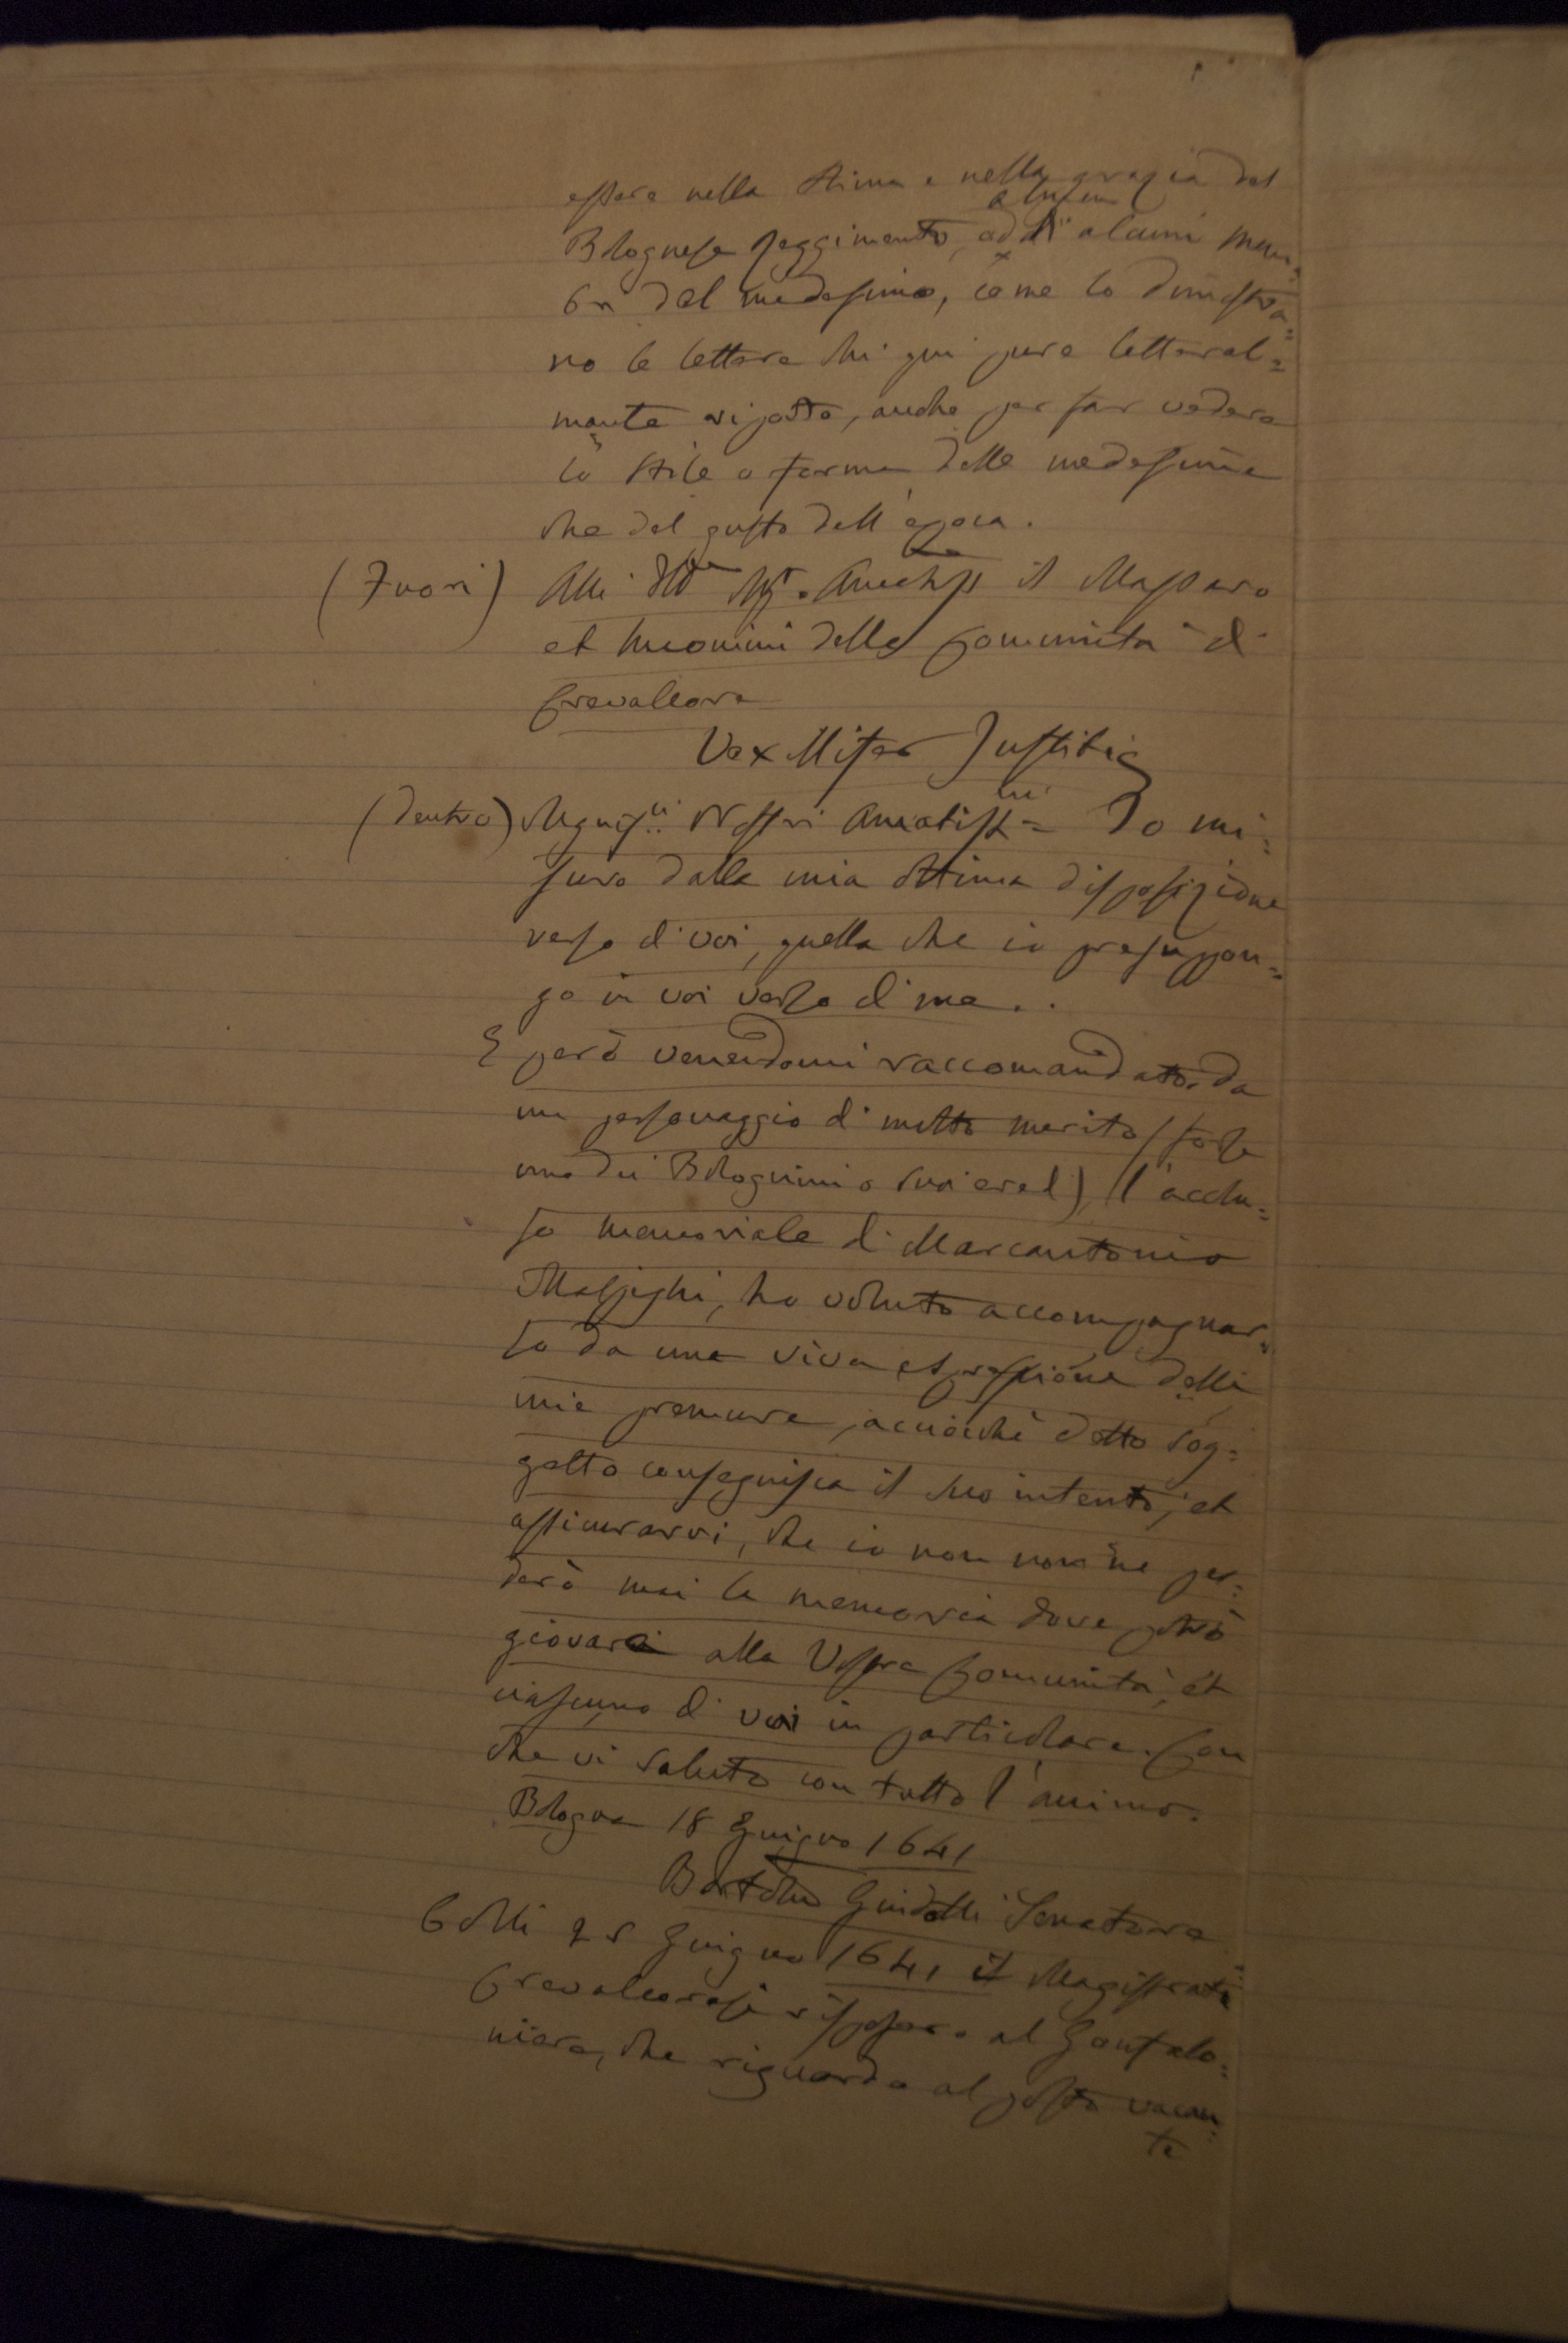 essere nella stima e nella grazia del
Bolognese Reggimento, almen di alcuni mem=
bri del medesimo, come lo dimostra=
no le lettere chi qui pure letteral=
mente riporto, anche per far vedere
lo stile e forma delle medesime
che del gusto dell'epoca.
(Fuori) Alli il Massaro
et huomini della Comunità di
Crevalcore
Vexillifer Justitiæ
(Dentro) Magnif.ci Nostri Amatiss.mi = Io mi=
suro dalla mia ottima disposizione
verso di voi, quella che io presuppon=
go in voi verso di me..
E però venendomi raccomandato da
un personaggio di molto merito (forse
uno dei Bolognini o suoi eredi) l'acclu=
so memoriale di Marcantonio
Malpighi, ho voluto accompagnar=
lo da una viva espressione delle
mie premure, acciochè detto sog=
getto conseguisca il suo intento, et
assicurarvi, che io non non ne per=
derò mai la memoria dove potrò
giovare alla Vostra Comunità, et
ciascuno di voi in particolare. Con
che vi saluto con tutto l'animo.
Bologna 18 Giugno 1641
Bortolo Guidotti Senatore
Colli 25 Giugno 1641 il Magistrato
Crevalcorese rispose al Gonfalo=
niere, che riguardo al posto vacan=
te